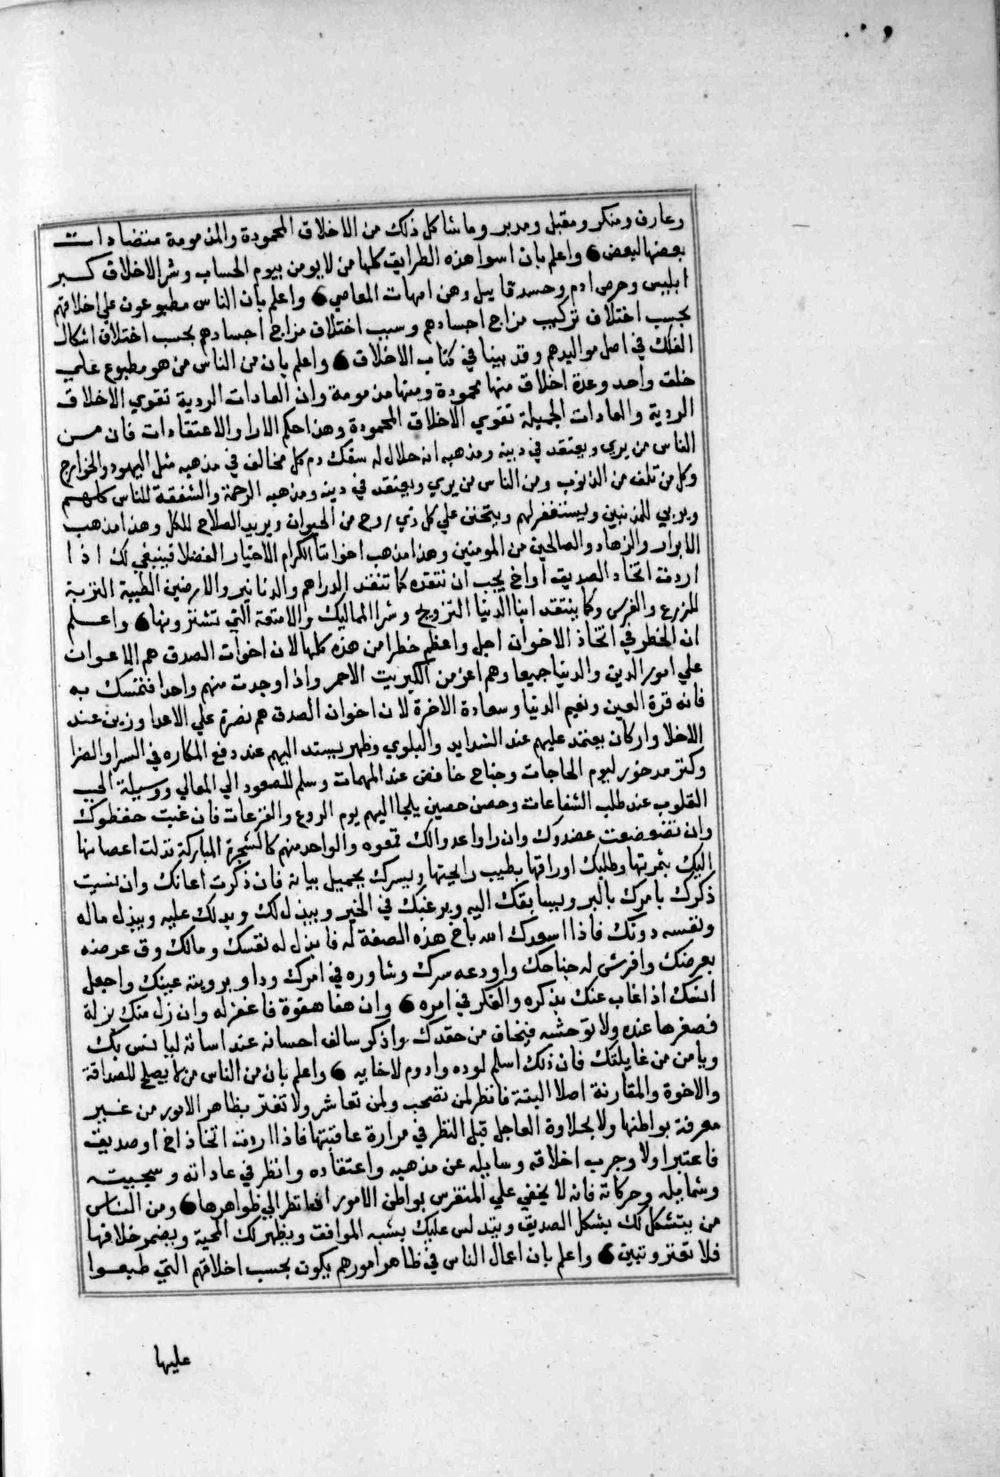 وعارف ومنكر ومقبل ومدبر وما شاكل ذلك من الاخلاق المحمودة والمذمومة متضادات
بعضها لبعض ٯ واعلم بان اسوا هذه الطرايق كلها من لا يومن بيوم الحساب وشر الاخلاق كبر
ابليس وحرص ادم وحسد قابيل وهن امهات المعاصي ٯ واعلم بان الناس مطبوعون علي اخلاقهم
بحسب اختلاف تركيب مزاج اجسادهم وسبب اختلاف مزاج اجسادهم بحسب اختلاف اشكال
الفلك في اصل مواليدهم وقد بينا في كتاب الاخلاق ٯ واعلم بان من الناس من هو مطبوع علي
خلق واحد وعدة اخلاق منها محمودة ومنها مذمومة وان العادات الردية تقوي الاخلاق
الردية والعادات الجميلة تقوي الاخلاق المحمودة وهذا حكم الارا والاعتقادات فان من
الناس من يري ويعتقد في دينه ومذهبه انه حلال له سفك دم كل مخالف في مذهبه مثل اليهود والخوارج
وكل من تلفه من الذنوب ومن الناس من يري ويعتقد في دينه ومذهبه الرحمة والشفقة للناس كلهم
ويرثي للمذنبين ويستغفر لهم ويتحنن علي كل ذي روح من الحيوان ويريد الصلاح للكل وهذا مذهب
الابرار والزهاد والصالحين من المومنين وهذا مذهب اخواننا الكرام الاخيار الفضلا فينبغي لك اذا
اردت اتخاذ الصديق او اخ يجب ان تنتقده كما تنتقد الدراهم والدنانير والارضين الطيبة التربة
للزرع والغرس وكما ينتقد ابنا الدنيا التزويج وشرا المماليك والامتعة التي تشترونها ٯ واعلم
ان الخطر في اتخاذ الاخوان اجل واعظم خطرا من هذه كلها لان اخوات الصدق هم الاعوان
علي امور الدين والدنيا جميعا وهم اعز من الكبريت الاحمر واذا وجدت منهم واحدا فتمسك به
فانه قرة العين ونعيم الدنيا وسعادة الاخرة لان اخوان الصدق هم نصرة علي الاعدا وزين عند
الاخلا واركان يعتمد عليهم عند الشدايد والبلوي وظهر يستند اليهم عند دفع المكاره في السرا والضرا
وكنز مدخور ليوم الحاجات وجناح خافض عند المهمات وسلم للصعود الي المعالي ووسيلة الي
القلوب عند طلب الشفاعات وحصن حصين يلجا اليهم يوم الروع والفزعات فان غبت حفظوك
وان تضعضعت عضدوك وان راوا عدوا لك قمعوه والواحد منهم كالشجرة المباركة تدلت اعصانها
اليك بثمرتها وظلتك اوراقها بطيب رايحتها ويسرك بجميل بيانه فان ذكرت اعانك وان نسيت
ذكرك يامرك بالبر ويسابقك اليه ويرغبك في الخير ويبذل لك ويدلك عليه ويبذل ماله
ونفسه دونك فاذا اسعدك الله باخ هذه الصفة له فابذل له نفسك ومالك وق عرضه
بعرضك وافرش له جناحك واودعه سرك وشاوره في امرك وداو برويته عينك واجعل
انسك اذا غاب عنك بذكره والفكر في امره ٯ وان هفا هفوة فاغفر له وان زل منك بزلة
فصغرها عنده ولا توحشه فيخاف من حقدك واذكر سالف احسانه عند اسائة ليانس بك
ويامن من غايلتك فان ذلك اسلم لوده وادوم لاخايه ٯ واعلم بان من الناس من لا يصلح للصداقة
والاخوة والمقارنة اصلا البتة فانظر لمن تصحب ولمن تعاشر ولا تغتر بظاهر الامور من غير
معرفة بواطنها ولا بحلاوة العاجل قبل النظر في مرارة عاقبتها فاذا اردت اتخاذ اخ او صديق
فاعتبر اولا وجرب اخلاقه وسايله عن مذهبه واعتقاده وانظر في عاداته وسجيته
وشمايله وحركاته فانه لا يخفي علي المتفرس بواطن الامور اذا نظر الي ظواهرها ٯ ومن الناس
من يتشكل لك بشكل الصديق ويتدلس عليك بشبه الموافق ويظهر لك المحبة ويضمر خلافها
فلا تغتر وتبين ٯ واعلم بان اعمال الناس في ظاهر امورهم يكون بحسب اخلاقهم التي طبعوا
عليها